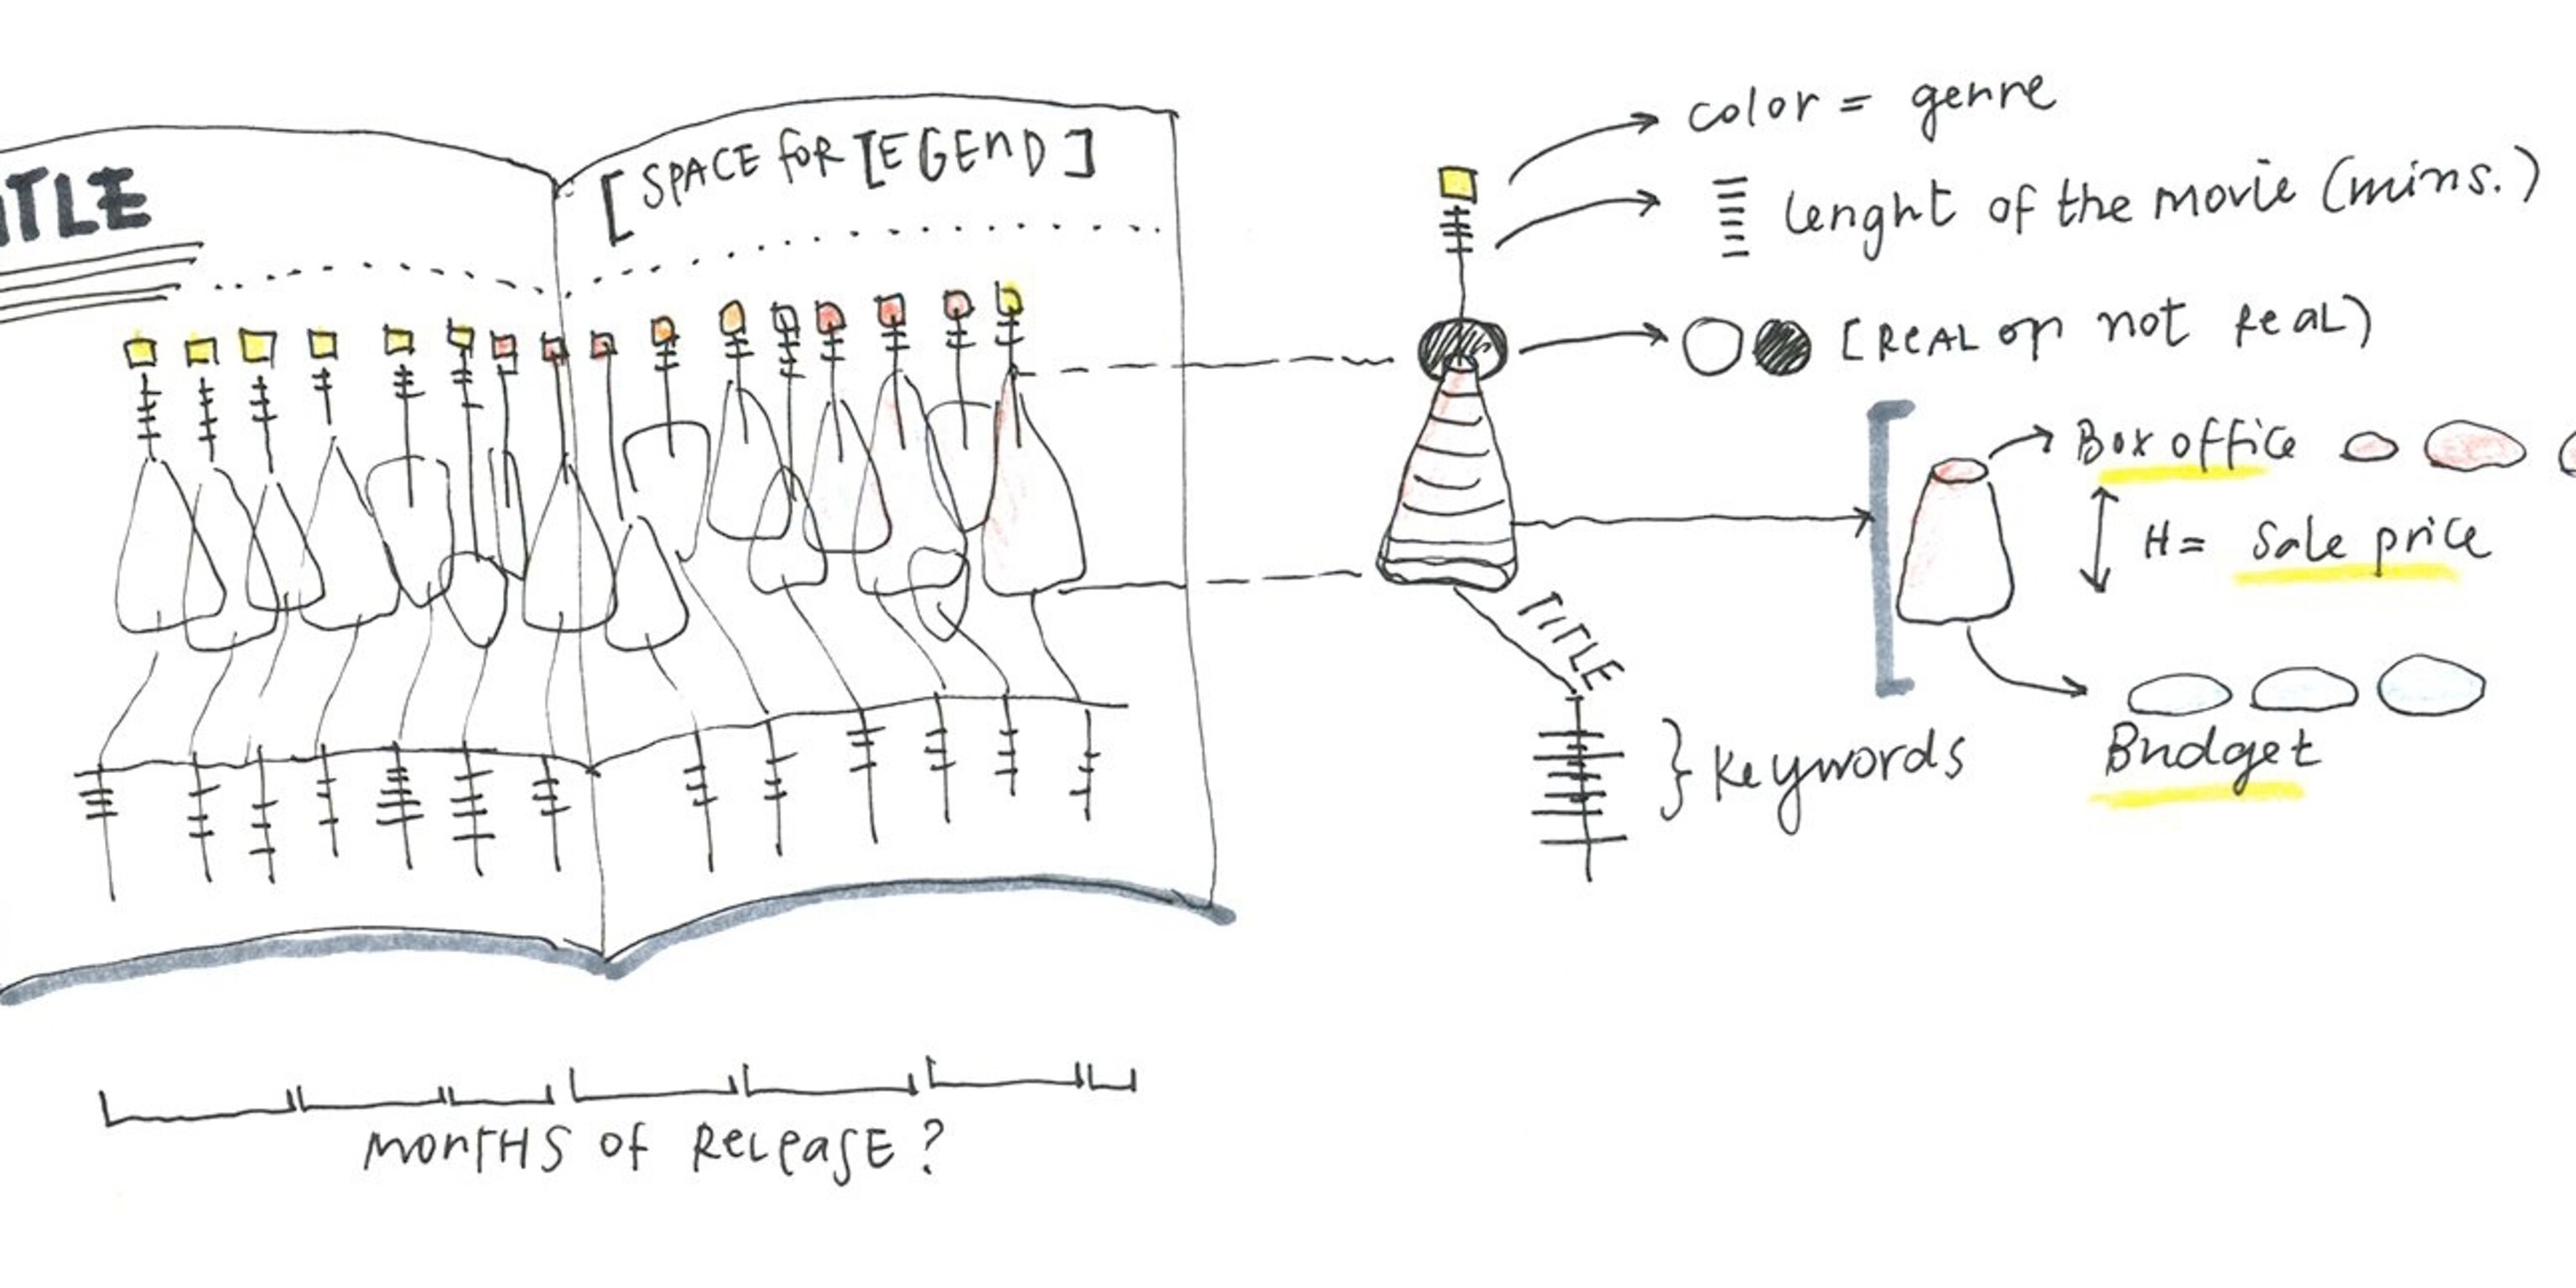 ITLE
[SPACE FOR LEGEND]
color = genre
lenght of the movie (mins.)
[REAL or not ReAL)
Box office
H= Sale price
Budget
TITLE
} Keywords
MONTHS OF RELEASE?